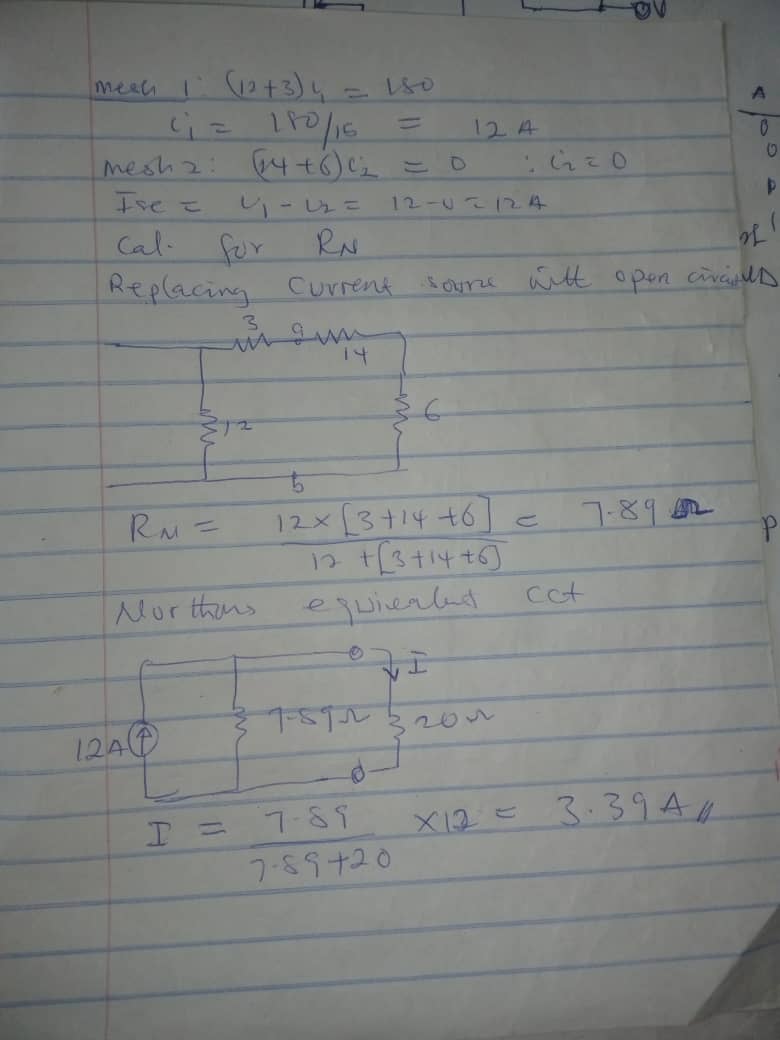 0V
mesh 1: (12+3)i₁ = 180
i₁ = 180/15 = 12 A
mesh 2: (14+6)i₂ = 0 : i₂ = 0
Isc = i₁ - i₂ = 12-0 = 12A
Cal. for RN
Replacing current source with open circuit
3 a 14
12 6
b
RN = 12 × [3+14+6] = 7.89 Ω
12 + [3+14+6]
Northons equivalent cct
I
12A 7.89Ω 20Ω
I = 7.89 × 12 = 3.39 A
7.89+20